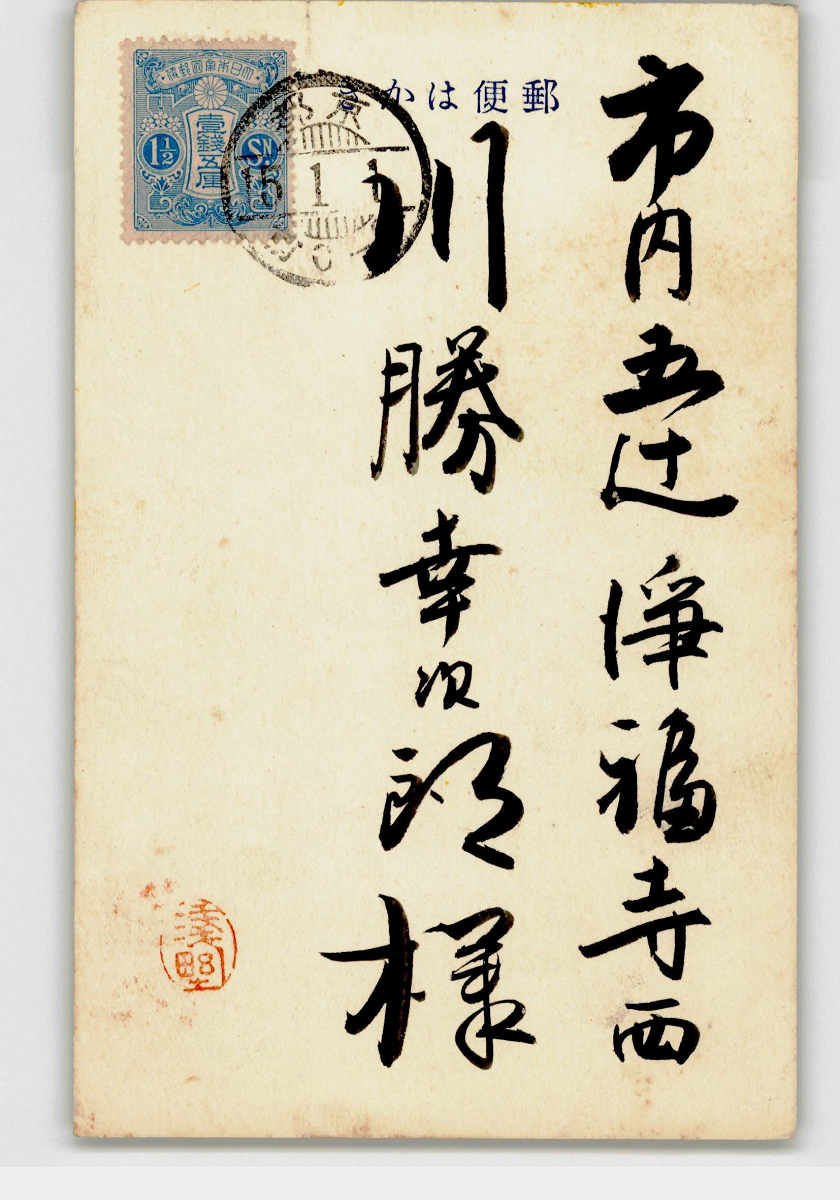 市内五辻浄福寺西
川勝幸次郎様
郵便はかき
大日本帝國郵便
壹錢五厘
1½ SN
京都
15 1 1
浅野